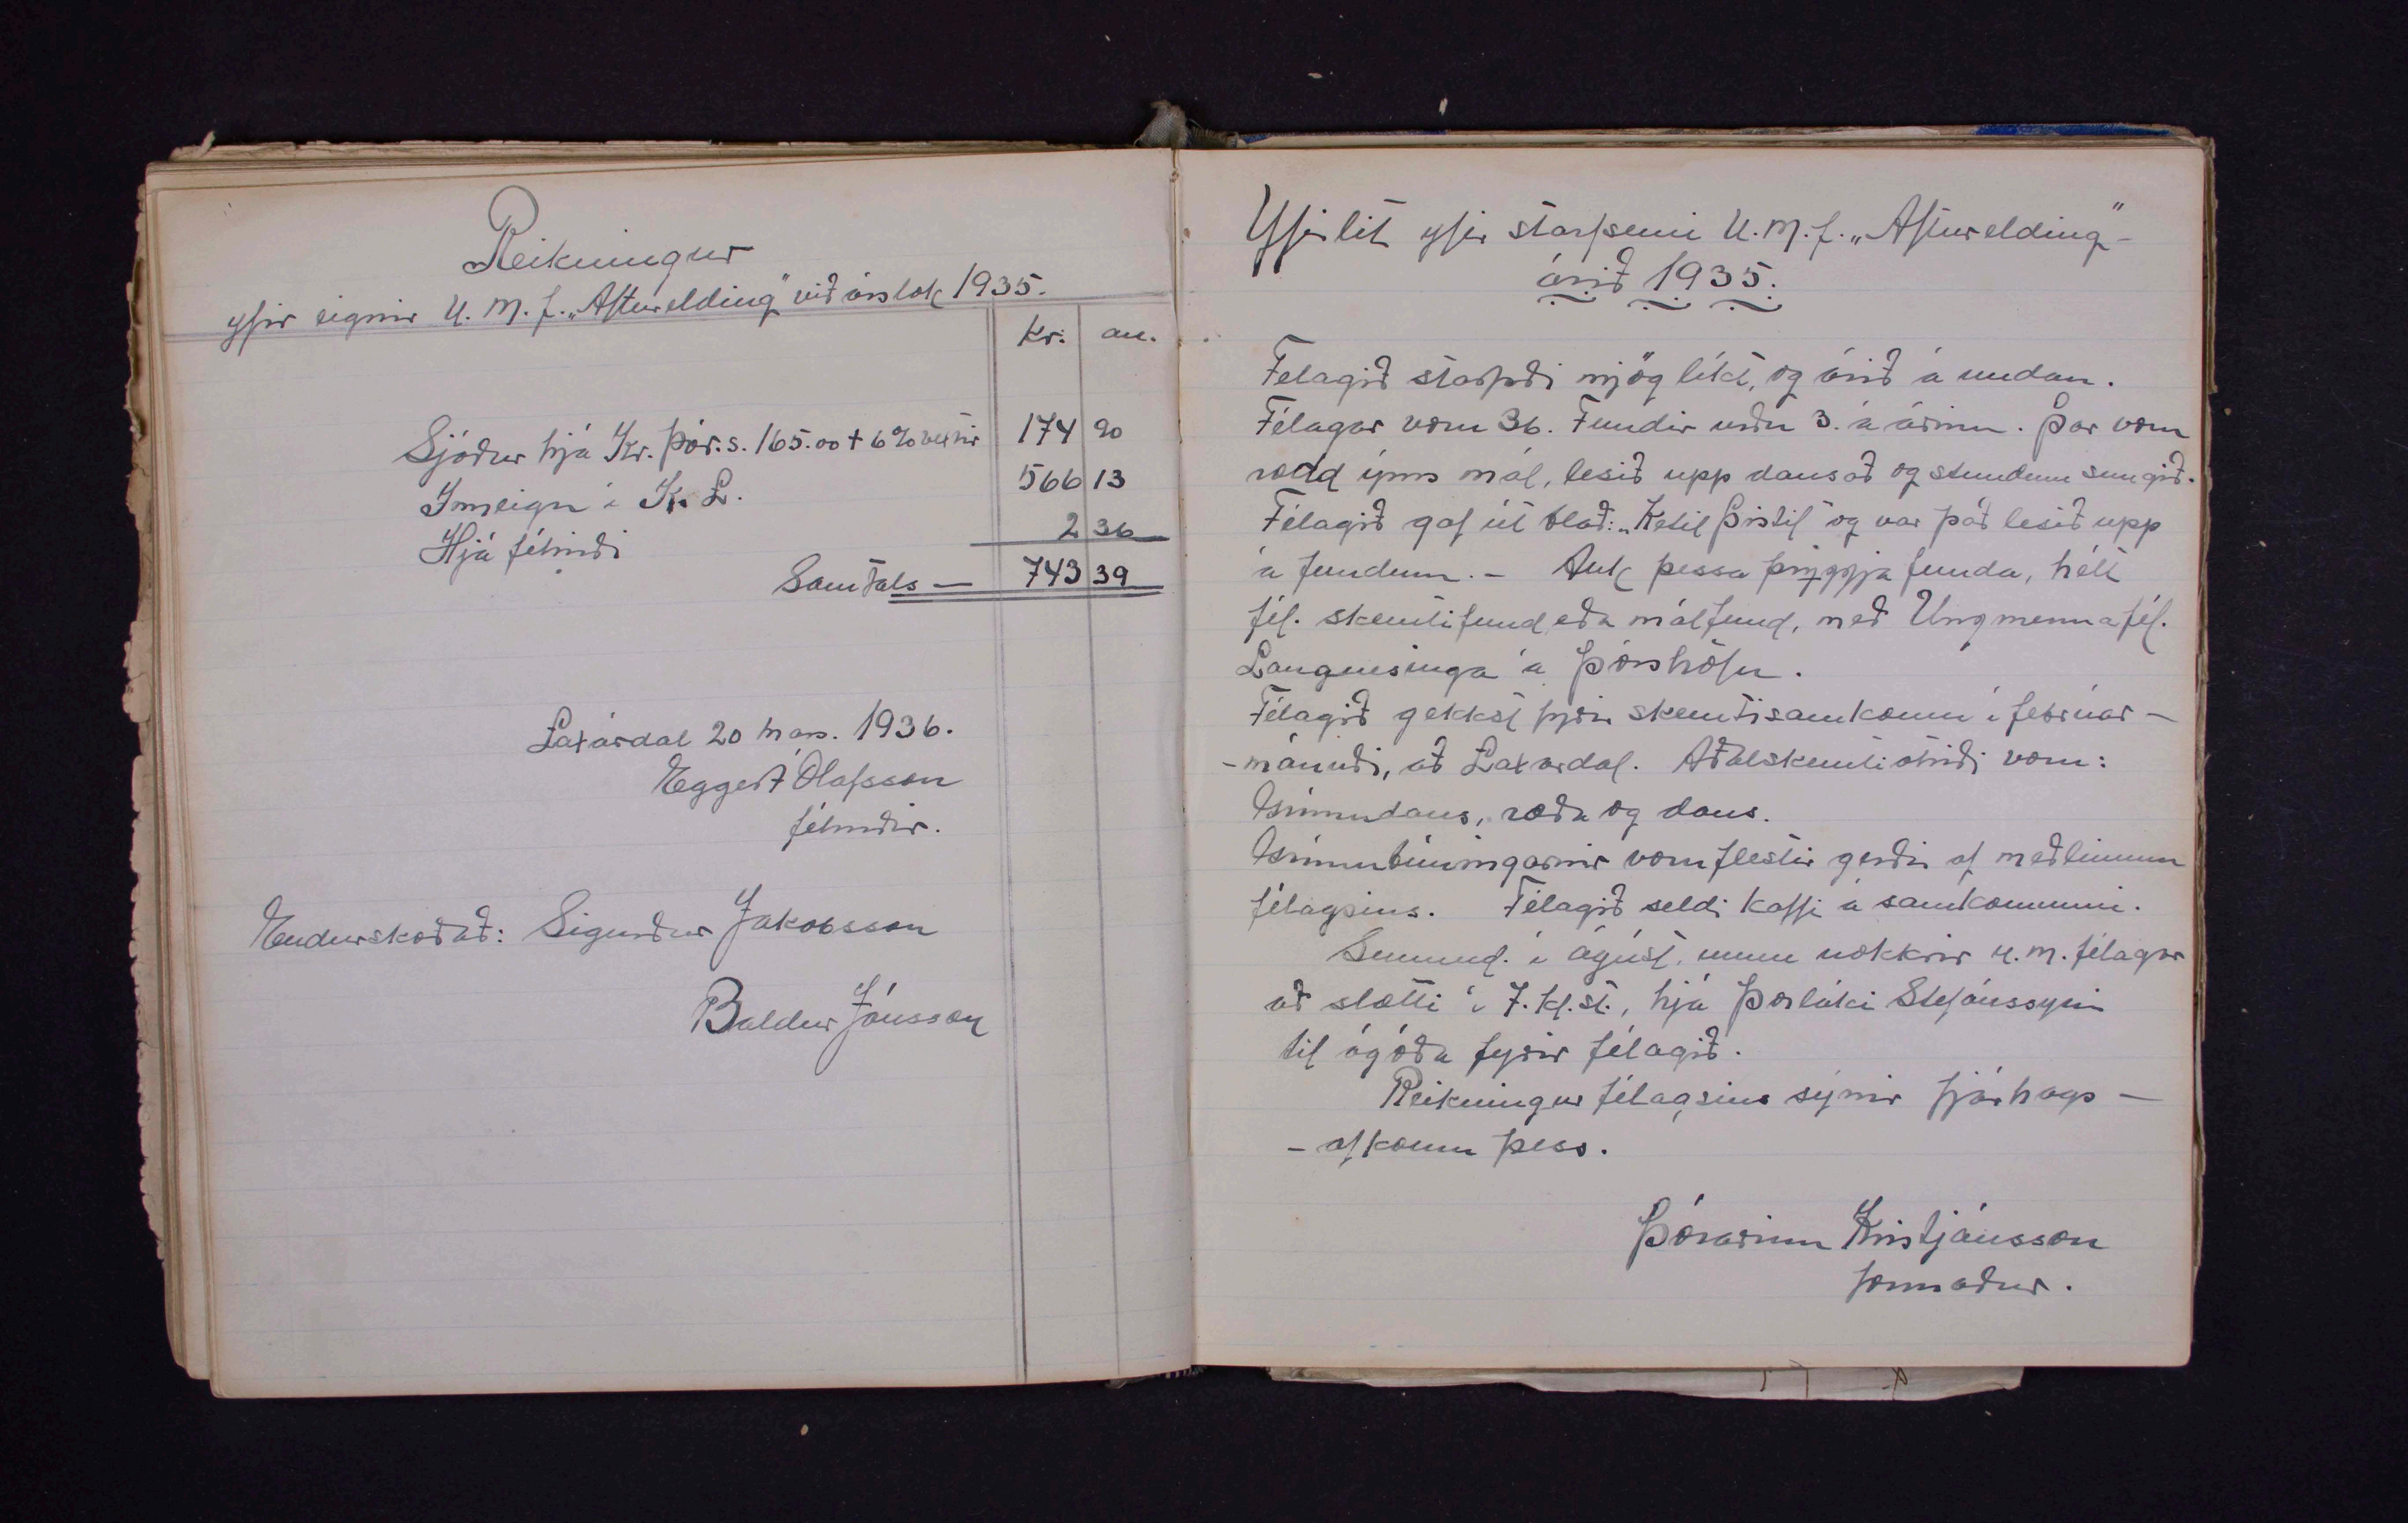 Reikningur
yfir eignir U.M.f. „Afturelding" við árslok 1935.
Kr: au.
Sjóður hjá Kr. Þór.s. 165.00 + 6% vextir 174 90
Inneign í K. L. 566 13
Hjá féhirði 2 36
Samtals — 743 39
Laxárdal 20 mars. 1936.
Eggert Ólafsson
féhirðir.
Endurskoðað: Sigurður Jakobsson
Baldur Jónsson
Yfirlit yfir starfsemi U.M.f. „Afturelding"-
árið 1935.
Felagið starfaði mjög líkt, og árið á undan.
Félagar voru 36. Fundir urðu 3. á árinu. Þar voru
rædd ýms mál, lesið upp dansað og stundum sungið.
Félagið gaf út blað: „Ketil Þistil" og var það lesið upp
á fundum. - Auk þessa þriggja funda, hélt
fél. skemtifund eða málfund, með Ungmennafél.
Langnesinga á Þórshöfn.
Félagið gekkst fyrir skemtisamkomu í febrúar-
-mánuði, að Laxárdal. Aðalskemtiatriði voru:
Grímudans, ræða og dans.
Grímubúningarnir voru flestir gerðir af meðlimum
félagsins. Félagið seldi kaffi á samkomunni.
Sunnud. í ágúst, unnu nokkrir u.m. félagar
að slætti í 7. kl.st., hjá Þorláki Stefánssyni
til ágóða fyrir félagið.
Reikningur félagsins sýnir fjárhags-
- afkomu þess.
Þórarinn Kristjánsson
formaður.